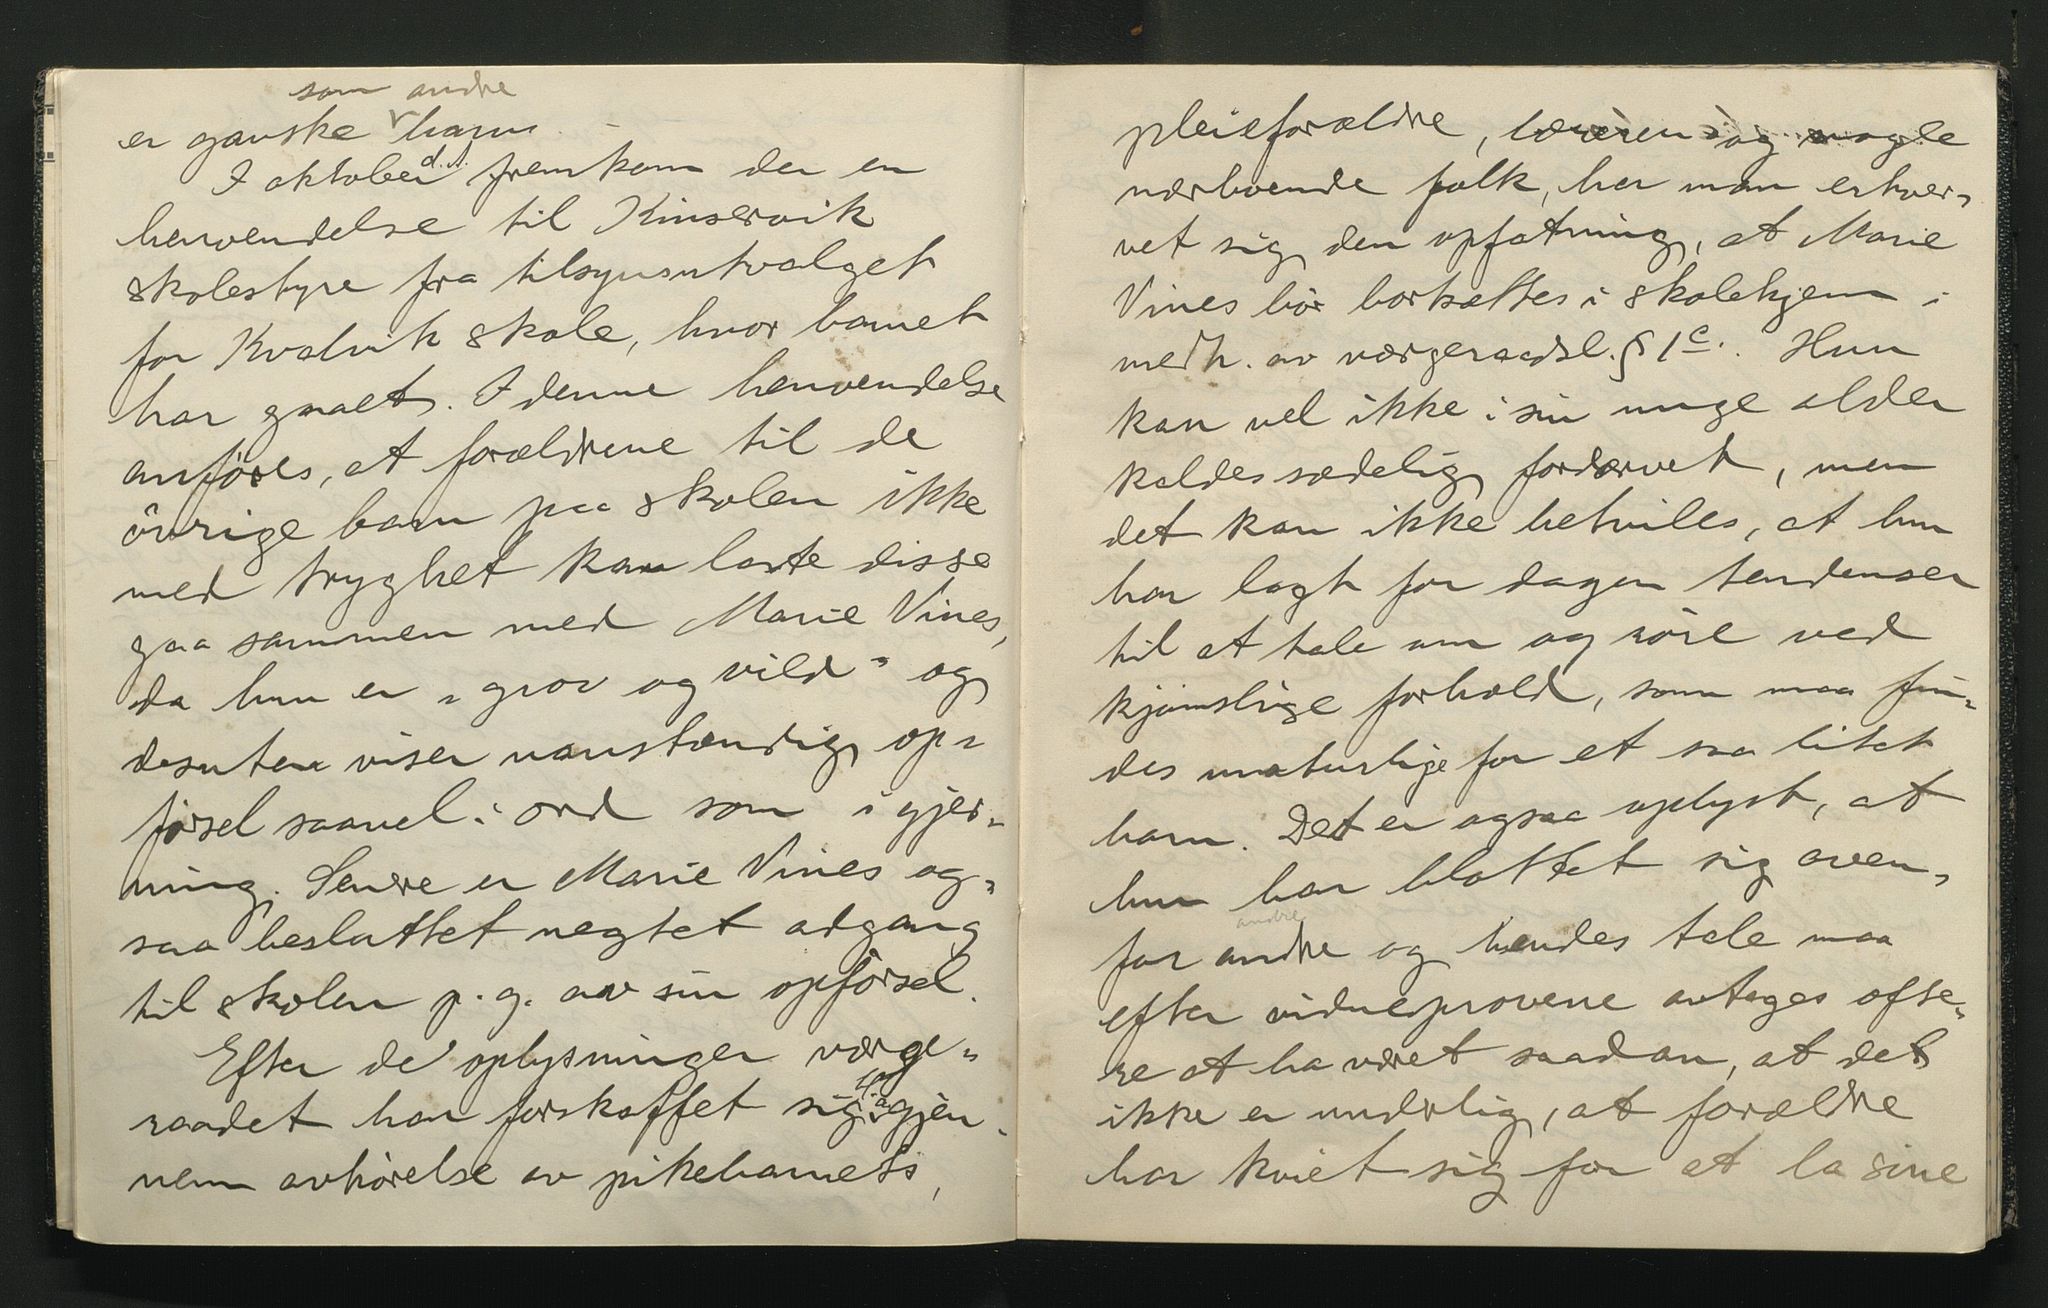 som andre
er ganske barn.
I oktober d.å. fremkom der en
henvendelse til Kinservik
skolestyre fra tilsynsutvalget
for Kvalvik skole, hvor barnet
har gaaet. I denne henvendelse
anföres, at forældrene til de
övrige barn paa skolen ikke
med tryghet kan late disse
gaa sammen med Marie Vines,
da hun er „grov og vild" og
desuten viser uanstændig op-
førsel saavel i ord som i gjer-
ning. Senere er Marie Vines og-
saa besluttet negtet adgang
til skolen p. g. av sin opførsel.
Efter de oplysninger værge-
raadet har forskaffet sig gjen-
nem avhørelse av pikebarnets
pleieforældre, læreren og nogle
nærboende folk, har man erhver-
vet sig den opfatning, at Marie
Vines bör bortsættes i skolehjem i
medh. av værgeraadsl. § 1 c. Hun
kan vel ikke i sin unge alder
kaldes sædelig fordærvet, men
det kan ikke betviles, at hun
har lagt for dagen tendenser
til at tale om og røre ved
kjønslige forhold, som maa fin-
des unaturlige for et saa litet
barn. Det er ogsaa oplyst, at
hun har blottet sig oven-
andre
for andre og hendes tale maa
efter vidneprovene antages ofte-
re at ha været saadan, at det
ikke er underlig, at forældre
har kviet sig for at la sine